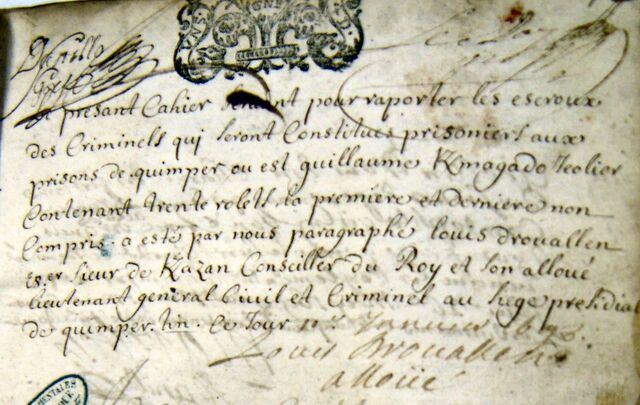 Le présant Cahier servant pour raporter les escroux
des Criminels qui seront Constitués prisoniers aux
prisons de quimper ou est guillaume Kmagado Jeolier
Contenant trente rolets, la premiere et derniere non
Compris. a esté par nous paragraphé louis drouallen
Es.er sieur de Kazan Conseiller du Roy et son alloué
lieutenant general Civil et Criminel au siege presidial
de quimper. Ce Jour
Louis Drouallen
alloüé
MENTALES